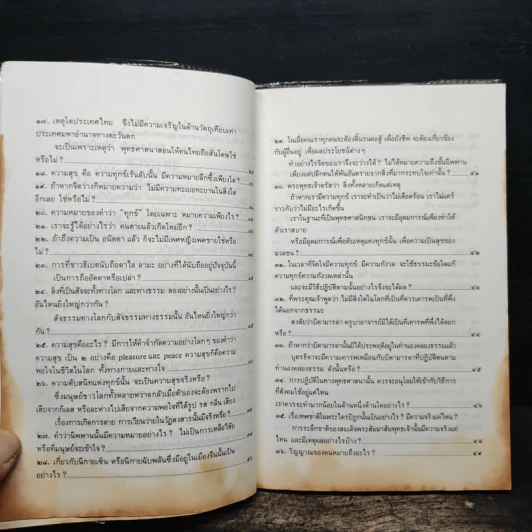 ๑๗. เหตุใดประเทศไทย จึงไม่มีความเจริญในด้านวัตถุเทียบเท่า
ประเทศมหาอำนาจทางตะวันตก
จะเป็นเพราะเหตุว่า พุทธศาสนาสอนให้คนไทยถือสันโดษใช่
หรือไม่ ?
๑๘. ความสุข คือ ความทุกข์เร้นลับนั้น มีความหมายลึกซึ้งเพียงใด ?
๑๙. ถ้าหากจิตว่างก็หมายความว่า ไม่มีความทะเยอทะยานในสิ่งใด
อีกเลย ใช่หรือไม่ ?
๒๐. ความหมายของคำว่า "ทุกข์" โดยเฉพาะ หมายความเพียงไร ?
๒๑. เราจะรู้ได้อย่างไรว่า คนตายแล้วเกิดใหม่อีก ?
๒๒. ถ้าถือความเป็น อนัตตา แล้ว ก็จะไม่มีเพศหญิงเพศชายใช่หรือ
ไม่ ?
๒๓. การที่ชาวธิเบตนับถือดาไล ลามะ อย่างที่ได้นับถืออยู่ปัจจุบันนี้
เป็นการถืออัตตาหรือเปล่า ?
๒๔. สิ่งที่เป็นสัจจะทั้งทางโลก และทางธรรม สองอย่างนั้นเป็นอย่างไร ?
อันไหนยิ่งใหญ่กว่ากัน ?
สัจธรรมทางโลกกับสัจธรรมทางธรรมนั้น อันไหนยิ่งใหญ่กว่า
กัน ?
๒๕. ความสุขคืออะไร ? มีการให้คำจำกัดความอย่างโลกๆ ของคำว่า
ความสุข เป็น ๒ อย่างคือ pleasure และ peace ความสุขก็คือความ
พอใจในชีวิตในโลก ทั้งทางกายและทางใจ
๒๖. ความดับสนิทแห่งทุกข์นั้น จะเป็นความสุขจริงหรือ ?
ซึ่งมนุษย์ชาวโลกทั้งหลายหวาดกลัวเมื่อตัวเองจะต้องพรากไป
เสียจากกิเลส หรือละห่างไปเสียจากความพอใจที่ได้รูป รส กลิ่น เสียง
เรื่องการเกิดการตาย การเวียนว่ายในวัฏสงสารนั้นมีจริงหรือ ?
๒๗. คำว่านิพพานนั้นมีความหมายอย่างไร ? ไม่เป็นการเหลือวิสัย
หรือที่มนุษย์จะเข้าใจ ?
๒๘. เกี่ยวกับนิกายเซ็น หรือนิกายฉับพลันซึ่งมีอยู่ในเมืองจีนนั้นเป็น
อย่างไร ?
๒๙. ในเมื่อคนเราทุกคนจะต้องดิ้นรนต่อสู้ เพื่อยังชีพ จะต้องเกี่ยวข้อง
กับผู้อื่นอยู่ เพื่อผลประโยชน์ต่างๆ
ทำอย่างไรจิตของเราจึงจะว่างได้ ? ไม่ได้หมายความถึงขั้นนิพพาน
เพียงแต่ปลดคนให้พ้นอันตรายจากสิ่งที่มากระทบใจเท่านั้น ?
๓๐. พระพุทธเจ้าตรัสว่า สิ่งทั้งหลายเกิดแต่เหตุ
ถ้าหากเรามีความทุกข์ เราก็ทำใจว่าไม่เดือดร้อน เราไม่แคร์
ราวกับว่าไม่มีอะไรเกิดขึ้น
เราในฐานะที่เป็นพุทธศาสนิกชน เราจะมีอุดมการณ์เพียงทำให้
ตัวเราสบาย
หรือมีอุดมการณ์เพื่อดับเหตุแห่งทุกข์นั้น เพื่อความเป็นสุขของ
มวลชน ?
๓๑. ในเวลาที่จิตใจมีความทุกข์ มีความกังวล จะใช้ธรรมะข้อใดแก้
ความทุกข์ความกังวลเหล่านั้น
และจะมีวิธีปฏิบัติตามนั้นอย่างไรจึงจะได้ผล ?
๓๒. ที่พระคุณเจ้าพูดว่า ไม่มีสิ่งใดในโลกที่เป็นที่ควรเคารพเป็นที่พึ่ง
ได้นอกจากธรรมะ
สงสัยว่าบิดามารดา ครูบาอาจารย์มิได้เป็นที่เคารพที่พึ่งได้ดอก
หรือ ?
๔๔
๓๓. ถ้าหากว่าบิดามารดานั้นมิได้เป็นผู้ที่ทำตนอยู่ในทำนองคลองธรรมแล้ว
บุตรธิดาจะมีความเคารพเหมือนกับบิดามารดาที่ปฏิบัติตนตาม
ทำนองคลองธรรม ดังนั้นหรือ ?
๓๔. การปฏิบัติในทางพุทธศาสนานั้น ควรจะอนุโลมให้เข้ากับวิธีการ
ที่สังคมใช้อยู่แค่ไหน
เราควรจะทำมากน้อยในด้านหนึ่งด้านใดอย่างไร ?
๔๖
๓๕. เรื่องทศชาติในพระไตรปิฎกนั้นเป็นอย่างไร ? มีความจริงแค่ไหน ?
การระลึกชาติของสมเด็จพระสัมมาสัมพุทธเจ้านั้นมีความจริงแค่
ไหน และมีเหตุผลอย่างไรบ้าง ?
๔๘
๓๖. วิญญาณของคนหมายถึงอะไร ?
๔๙